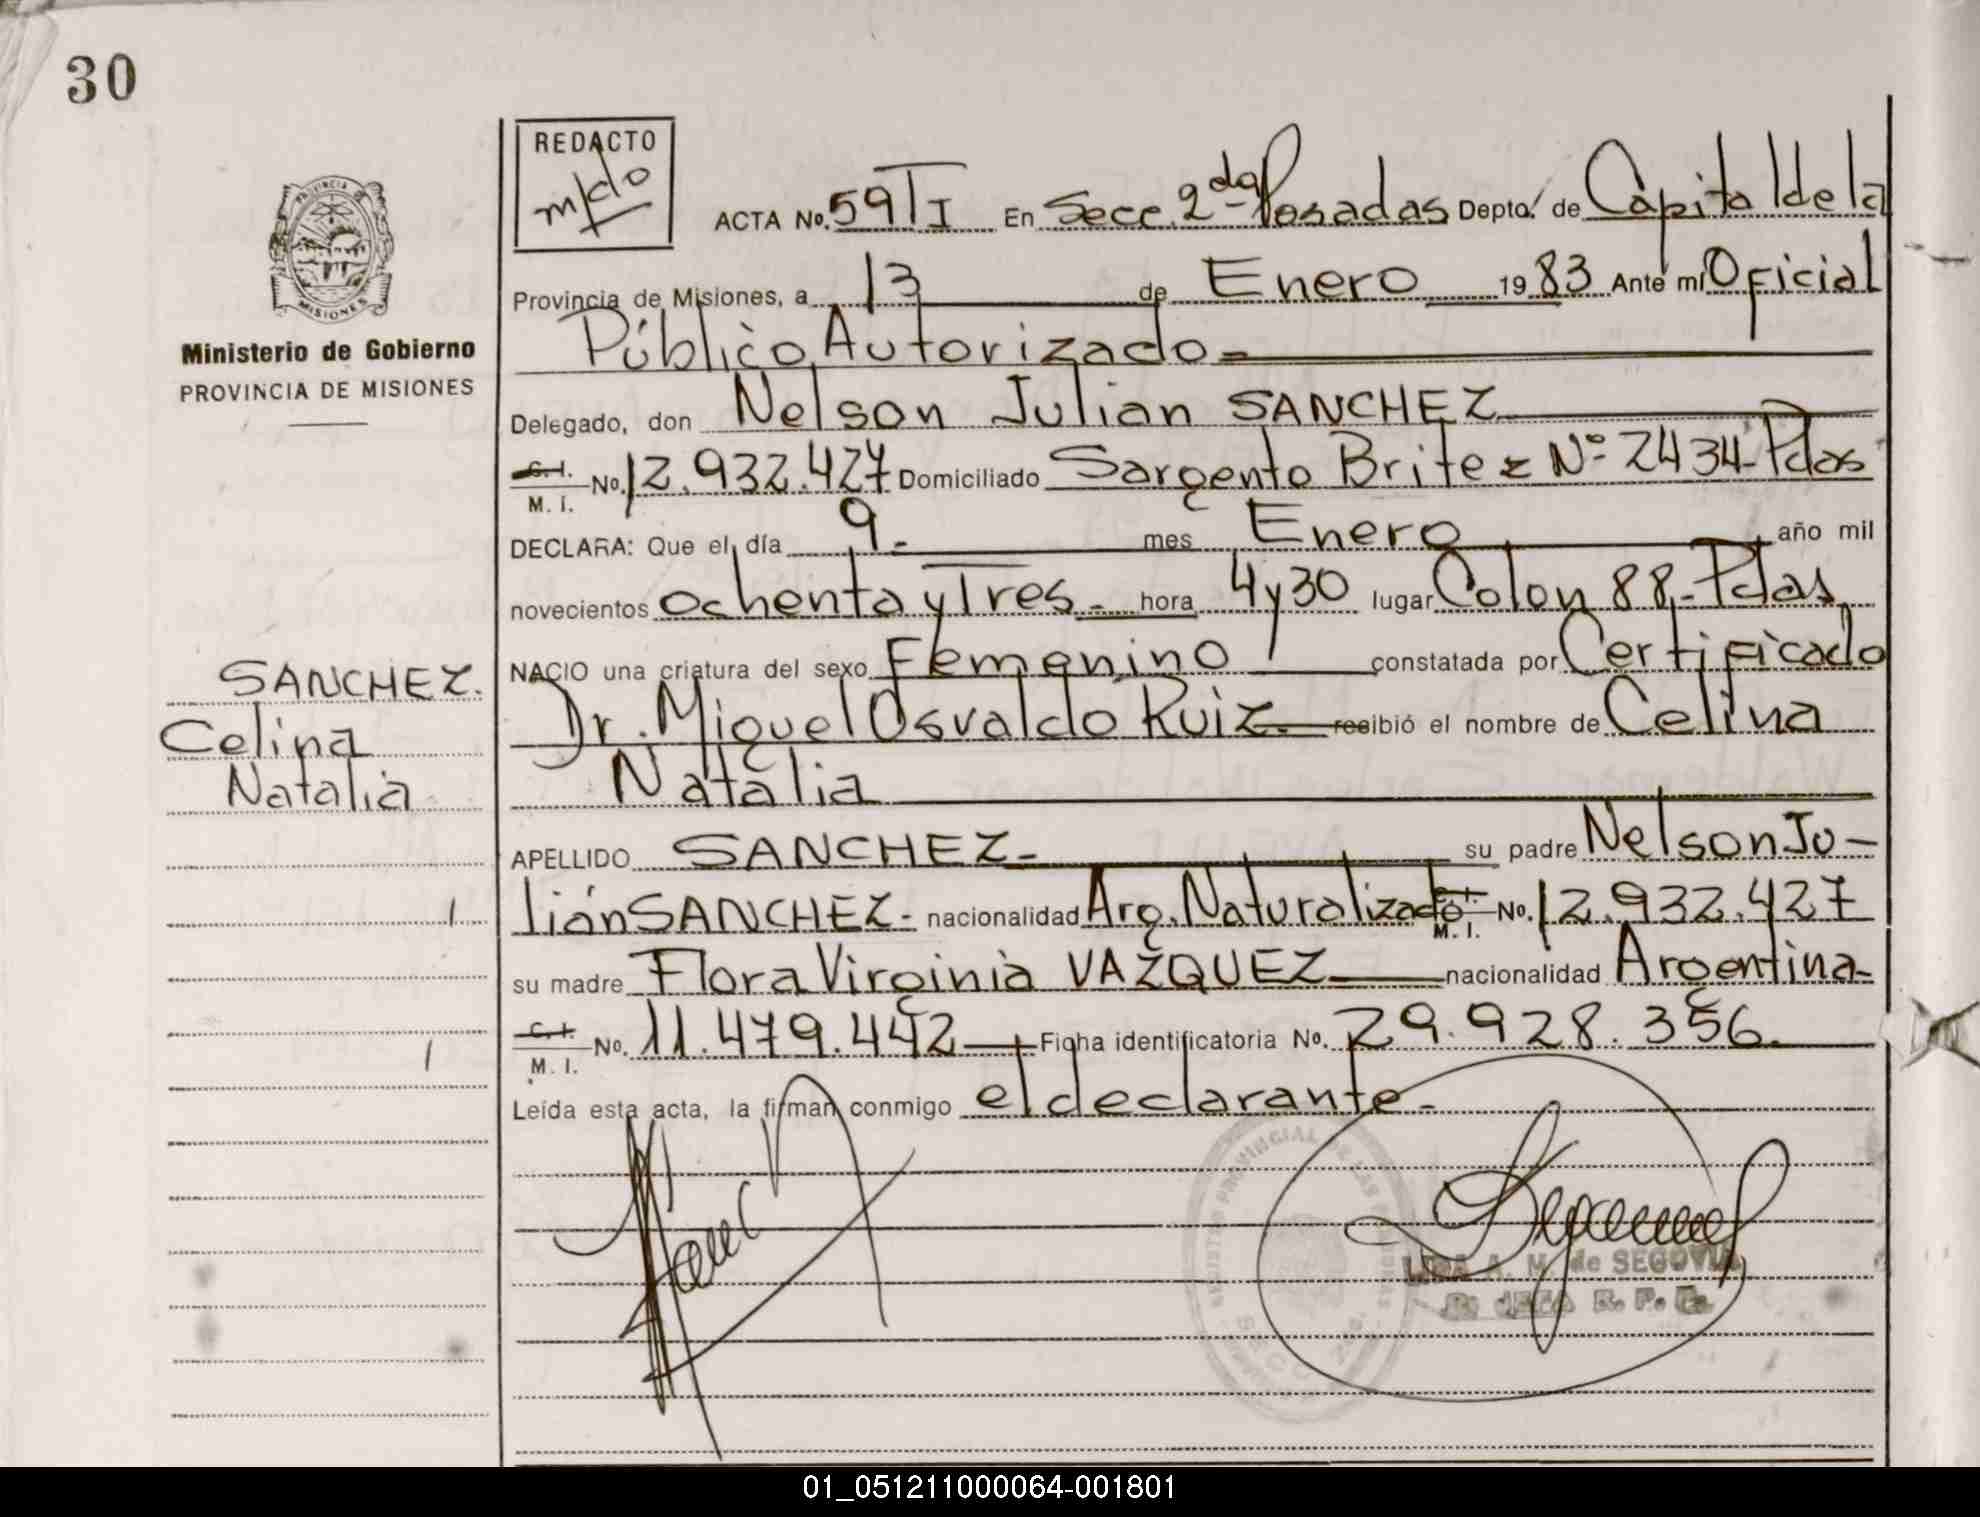 30
REDACTO
ACTA No. 59 TI En Secc. 2da Posadas Depto. de Capital de la
Provincia de Misiones, a 13 de Enero 1983 Ante mi Oficial
Público Autorizado
Delegado, don Nelson Julian SANCHEZ
C. I.
M. I. No. 12.932.427 Domiciliado Sargento Britez Nº 2434-Pdas
DECLARA: Que el día 9 - mes Enero año mil
novecientos ochenta y Tres - hora 4 y 30 lugar Colon 88,- Pdas,
NACIO una criatura del sexo Femenino constatada por Certificado
Dr. Miguel Osvaldo Ruiz recibió el nombre de Celina
Natalia
APELLIDO SANCHEZ - su padre Nelson Ju-
lián SANCHEZ - nacionalidad Arg. Naturalizado C. I. M. I. No. 12.932.427
su madre Flora Virginia VAZQUEZ nacionalidad Argentina-
C. I.
M. I. No. 11.479.442 Ficha identificatoria No. 29.928.356.
Leída esta acta, la firman conmigo el declarante -
Ministerio de Gobierno
PROVINCIA DE MISIONES
SANCHEZ.
Celina
Natalia
A. M. de SEGOVIA
01_051211000064-001801